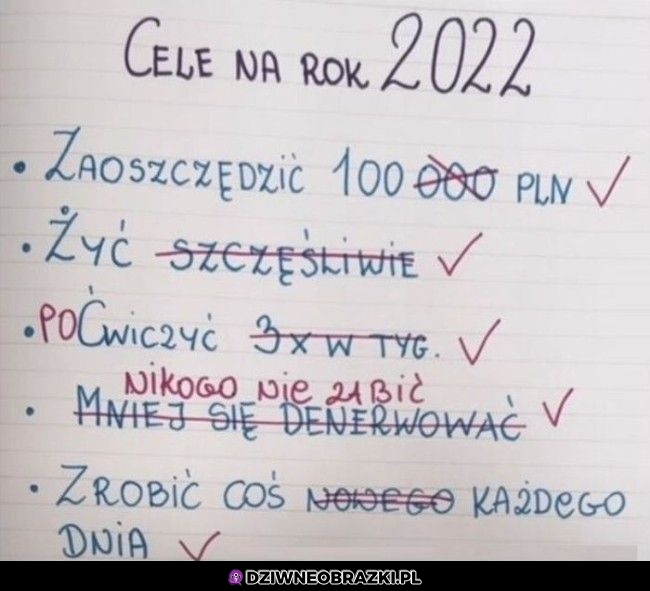 CELE NA ROK 2022
• ZAOSZCZĘDZIĆ 100 000 PLN ✓
• ŻYĆ SZCZĘŚLIWIE ✓
• POĆWICZYĆ 3X W TYG. ✓
NIKOGO NIE ZABIĆ
• MNIEJ SIĘ DENERWOWAĆ ✓
• ZROBIĆ COŚ NOWEGO KAŻDEGO
DNIA ✓
DZIWNEOBRAZKI.PL